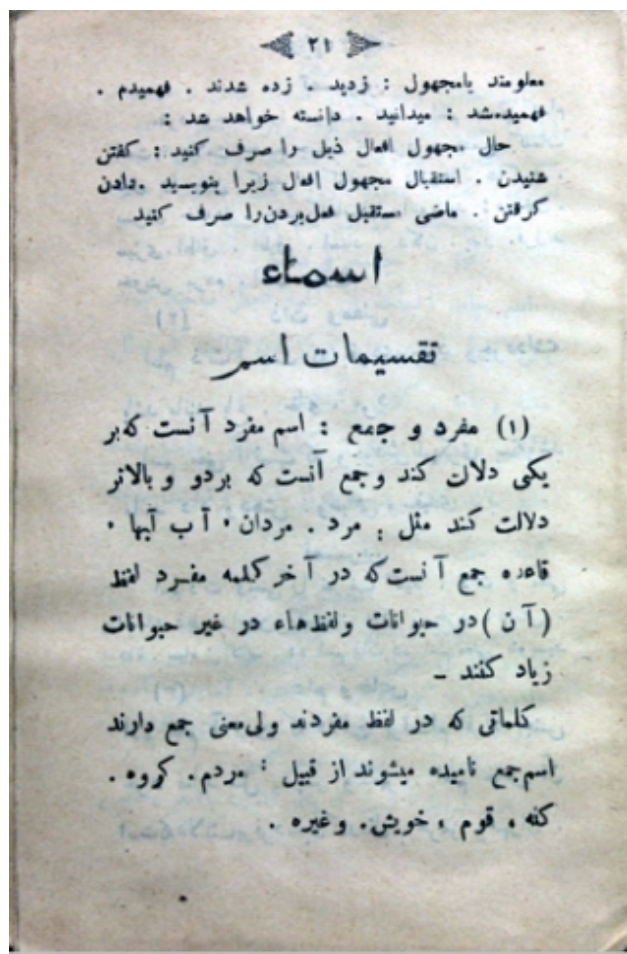 ۲۱
معلومند یامجهول : زدید . زده شدند . فهمیدم .
فهمیده‌شد : میدانید . دانسته خواهد شد :
حال مجهول افعال ذیل را صرف کنید : کفتن
شنیدن . استقبال مجهول افعال زیرا بنویسید .دادن
کرفتن . ماضی مستقبل فعل‌بردن‌را صرف کنید
اسماء
تقسیمات اسم
(۱) مفرد و جمع : اسم مفرد آنست که بر
یکی دلالت کند و جمع آنست که بردو و بالاتر
دلالت کند مثل : مرد . مردان ، آب آبها ،
قاعده جمع آنست که در آخر کلمه مفرد لفظ
(آن) در حیوانات و لفظ‌هاء در غیر حیوانات
زیاد کنند ـ
کلماتی که در لفظ مفردند ولی‌معنی جمع دارند
اسم‌جمع نامیده میشوند از قبیل : مردم . کروه .
قوم ، خویش. وغیره .